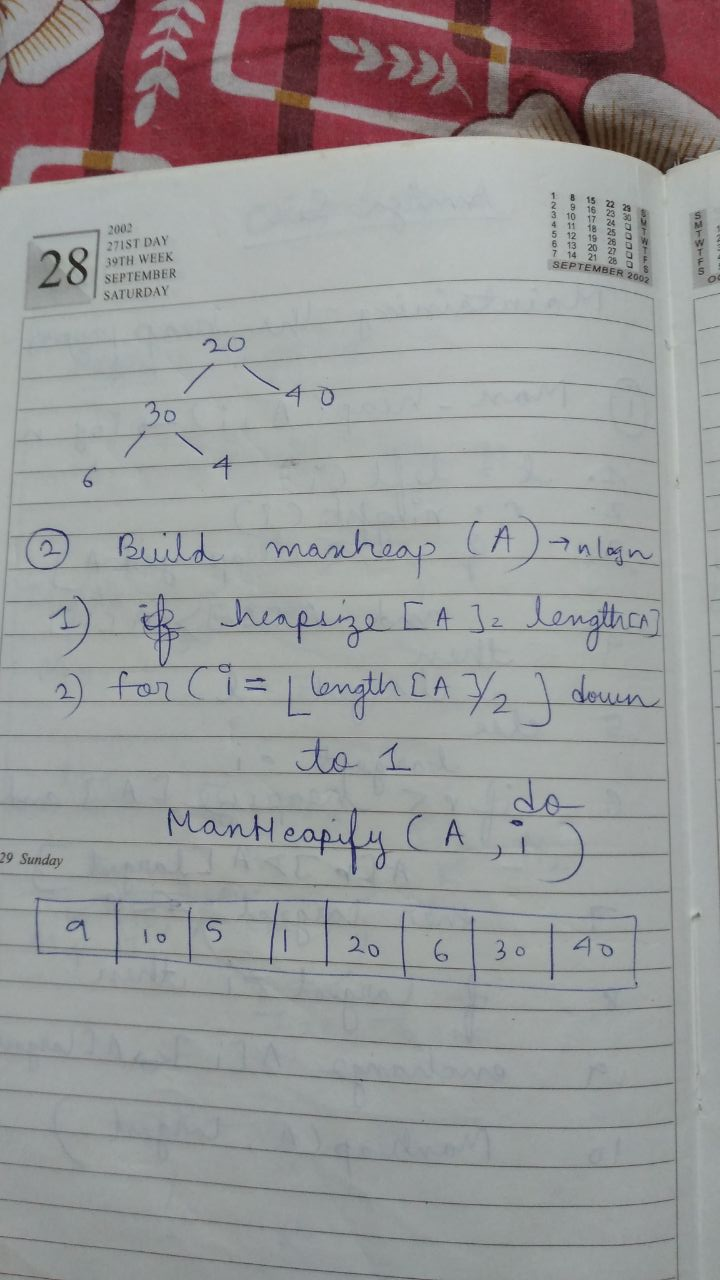 28
2002
271ST DAY
39TH WEEK
SEPTEMBER
SATURDAY
1 8 15 22 29 S
2 9 16 23 30 M
3 10 17 24 T
4 11 18 25 W
5 12 19 26 T
6 13 20 27 F
7 14 21 28 S
SEPTEMBER 2002
20
30 40
6 4
② Build maxheap (A) → nlogn
1) heapsize [A] = length[A]
2) for (i = ⌊length[A]/2⌋ down
to 1
do
MaxHeapify (A, i)
29 Sunday
9 10 5 1 20 6 30 40